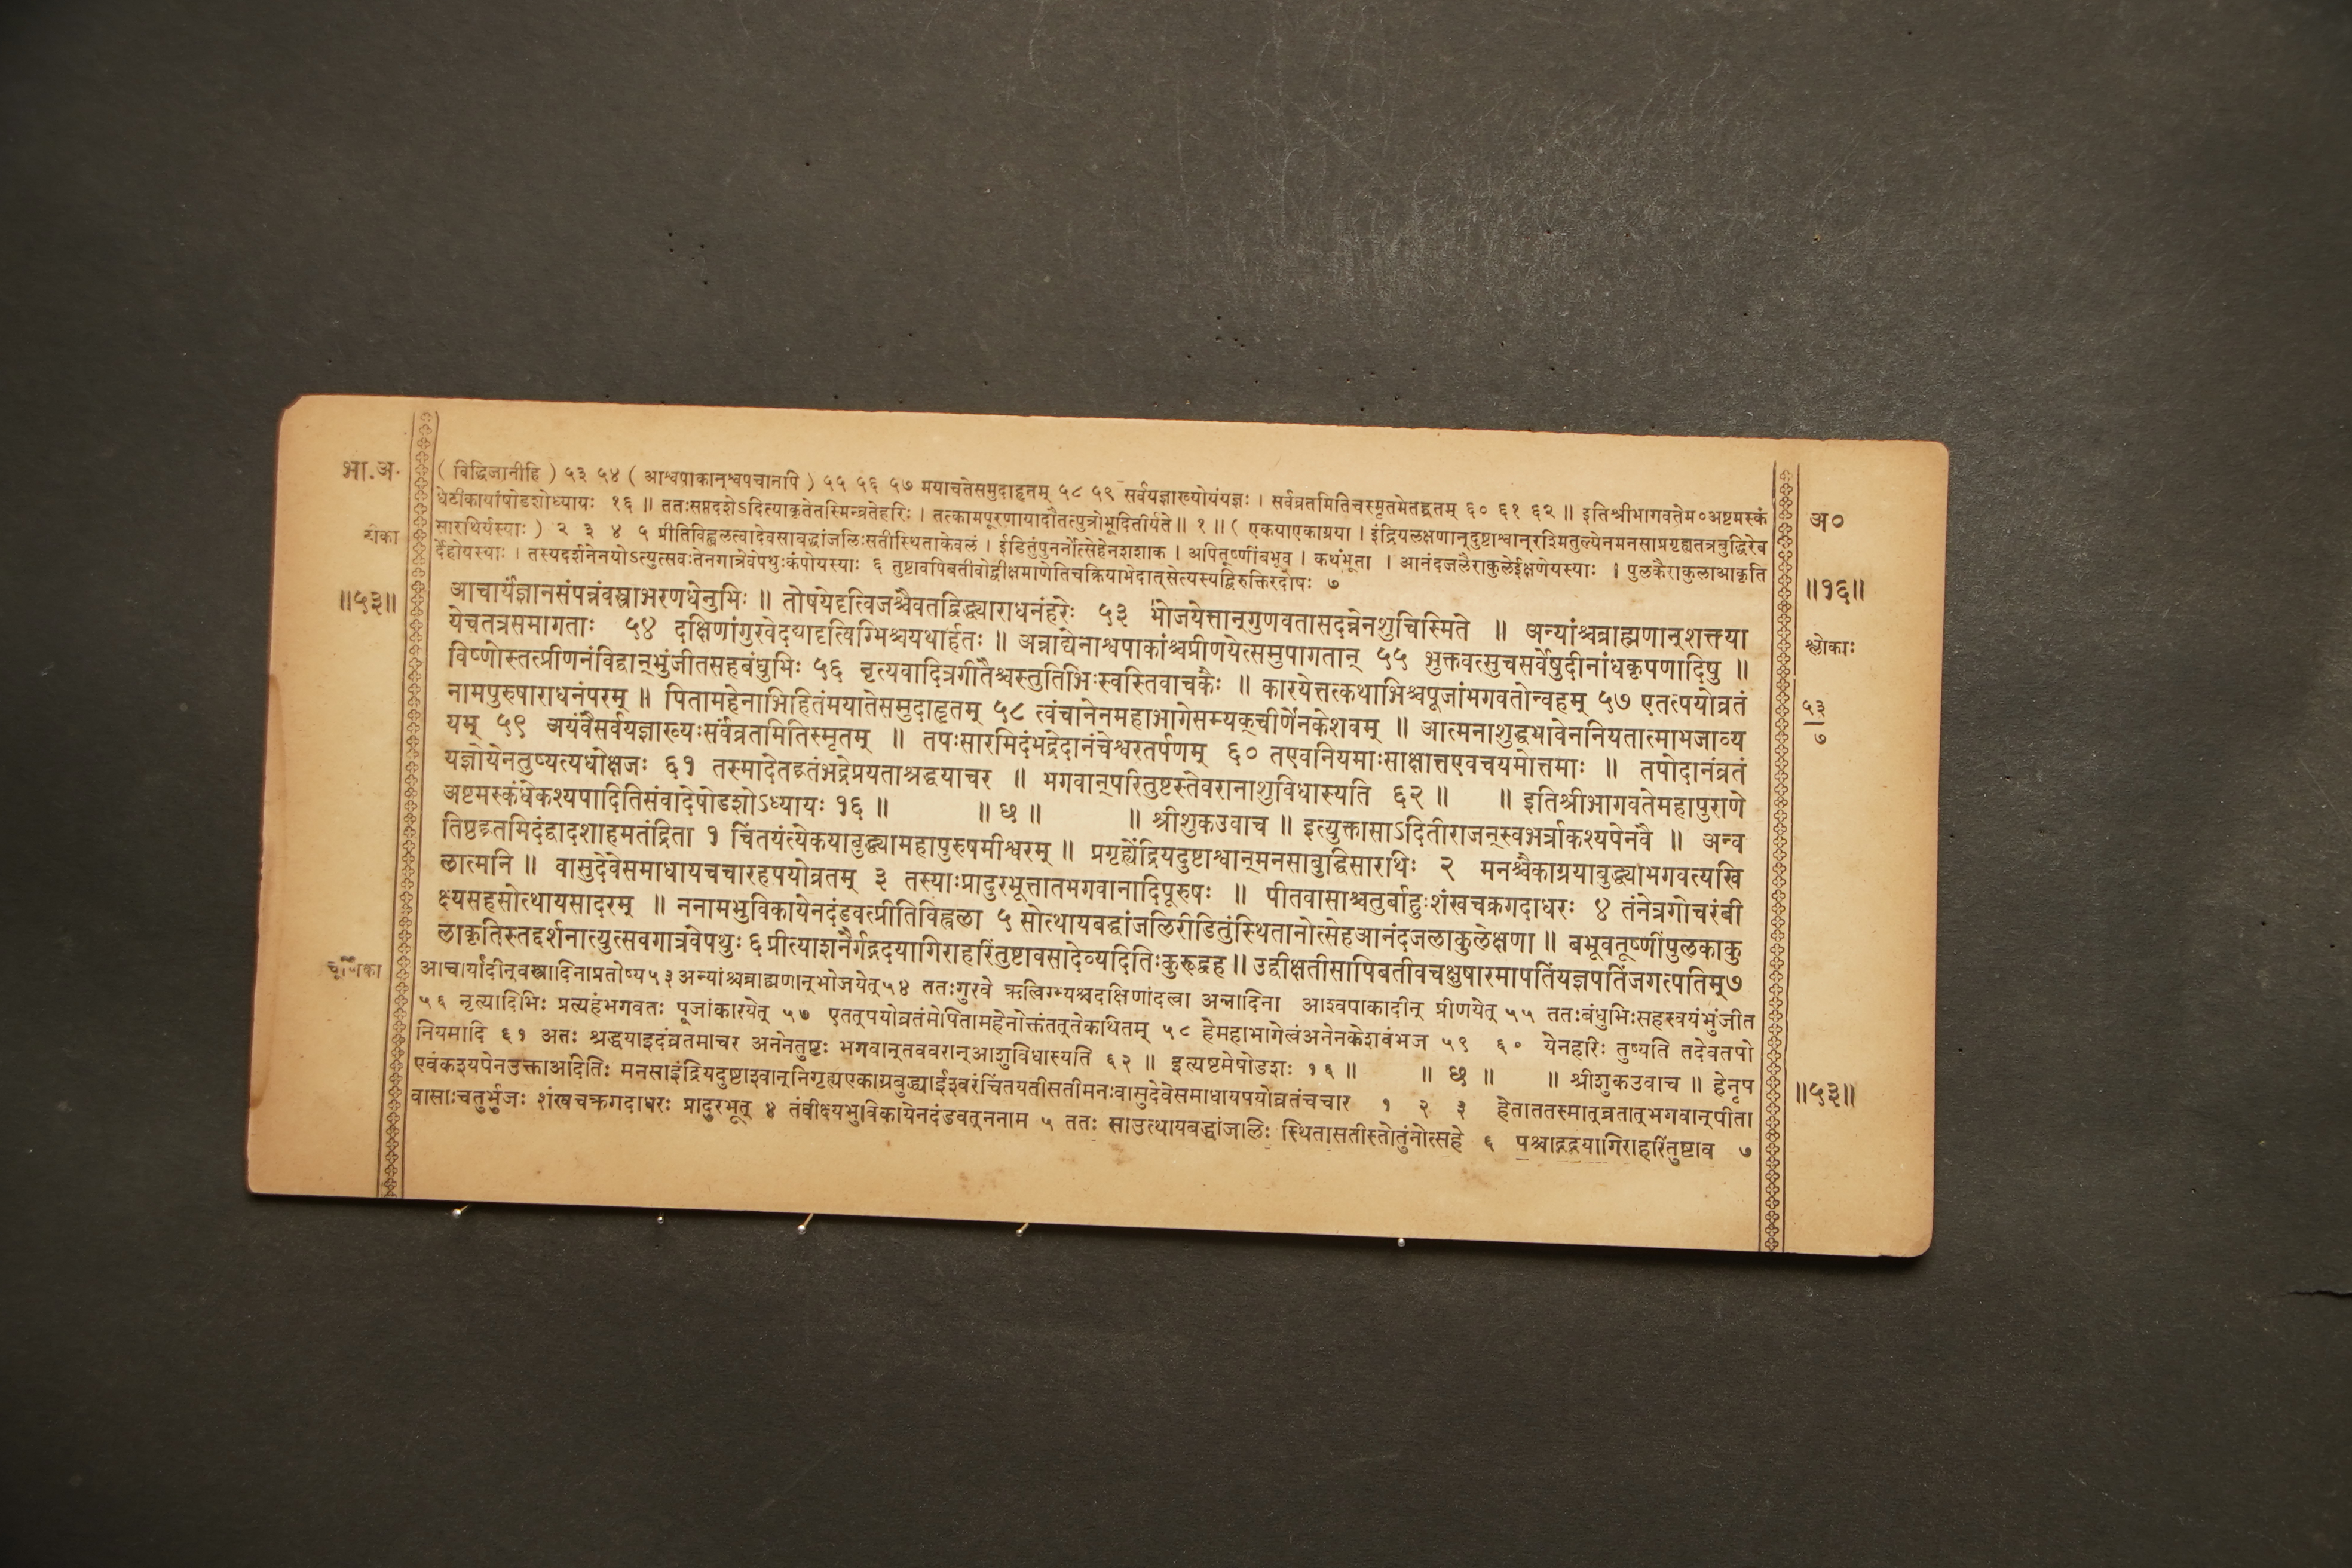 भा.अ. ( विद्धिजानीहि ) ५३ ५४ ( आश्वपाकान्श्वपचानपि ) ५५ ५६ ५७ मयाचतेसमुदाहृतम् ५८ ५९ सर्वयज्ञाख्योयंयज्ञः । सर्वव्रतमितिचस्मृतमेतद्व्रतम् ६० ६१ ६२ ॥ इतिश्रीभागवतेम०अष्टमस्कं
धेटीकायांषोडशोध्यायः १६ ॥ ततःसप्तदशेऽदित्याकृतेतस्मिन्व्रतेहरिः । तत्कामपूरणायादौतत्पुत्रोभूदितीर्यते ॥ १ ॥ ( एकयाएकाग्रया । इंद्रियलक्षणान्दुष्टाश्वान्रश्मितुल्येनमनसाप्रगृह्यतत्रबुद्धिरेव अ०
टीका सारथिर्यस्याः ) २ ३ ४ ५ प्रीतिविह्वलत्वादेवसाबद्धांजलिःसतीस्थिताकेवलं । ईडितुंपुनर्नोत्सेहेनशशाक । अपितूष्णींबभूव । कथंभूता । आनंदजलैराकुलेईक्षणेयस्याः । पुलकैराकुलाआकृति
र्देहोयस्याः । तस्यदर्शनेनयोऽत्युत्सवःतेनगात्रेवेपथुःकंपोयस्याः ६ तुष्टावपिबतीवोद्वीक्षमाणेतिचक्रियाभेदात्सेत्यस्यद्विरुक्तिरदोषः ७
॥५३॥ आचार्यंज्ञानसंपन्नंवस्त्राभरणधेनुभिः ॥ तोषयेदृत्विजश्चैवतद्विद्ध्याराधनंहरेः ५३ भोजयेत्तान्गुणवतासदन्नेनशुचिस्मिते ॥ अन्यांश्चब्राह्मणान्शक्त्या ॥१६॥
येचतत्रसमागताः ५४ दक्षिणांगुरवेदद्यादृत्विग्भिश्चयथार्हतः ॥ अन्नाद्येनाश्वपाकांश्चप्रीणयेत्समुपागतान् ५५ भुक्तवत्सुचसर्वेषुदीनांधकृपणादिषु ॥ श्लोकाः
विष्णोस्तत्प्रीणनंविद्वान्भुंजीतसहबंधुभिः ५६ नृत्यवादित्रगीतैश्चस्तुतिभिःस्वस्तिवाचकैः ॥ कारयेत्तत्कथाभिश्चपूजांभगवतोन्वहम् ५७ एतत्पयोव्रतं ५३
नामपुरुषाराधनंपरम् ॥ पितामहेनाभिहितंमयातेसमुदाहृतम् ५८ त्वंचानेनमहाभागेसम्यक्चीर्णेनकेशवम् ॥ आत्मनाशुद्धभावेननियतात्माभजाव्य ७
यम् ५९ अयंवैसर्वयज्ञाख्यःसर्वव्रतमितिस्मृतम् ॥ तपःसारमिदंभद्रेदानंचेश्वरतर्पणम् ६० तएवनियमाःसाक्षात्तएवचयमोत्तमाः ॥ तपोदानंव्रतं
यज्ञोयेनतुष्यत्यधोक्षजः ६१ तस्मादेतद्व्रतंभद्रेप्रयताश्रद्धयाचर ॥ भगवान्परितुष्टस्तेवरानाशुविधास्यति ६२ ॥ ॥ इतिश्रीभागवतेमहापुराणे
अष्टमस्कंधेकश्यपादितिसंवादेषोडशोऽध्यायः १६ ॥ ॥ छ ॥ ॥ श्रीशुकउवाच ॥ इत्युक्तासाऽदितीराजन्स्वभर्त्राकश्यपेनवै ॥ अन्व
तिष्ठद्व्रतमिदंद्वादशाहमतंद्रिता १ चिंतयंत्येकयाबुद्ध्यामहापुरुषमीश्वरम् ॥ प्रगृह्येंद्रियदुष्टाश्वान्मनसाबुद्धिसारथिः २ मनश्चैकाग्रयाबुद्ध्याभगवत्यखि
लात्मनि ॥ वासुदेवेसमाधायचचारहपयोव्रतम् ३ तस्याःप्रादुरभूत्तातभगवानादिपूरुषः ॥ पीतवासाश्चतुर्बाहुःशंखचक्रगदाधरः ४ तंनेत्रगोचरंवी
क्ष्यसहसोत्थायसादरम् ॥ ननामभुविकायेनदंडवत्प्रीतिविह्वला ५ सोत्थायबद्धांजलिरीडितुंस्थितानोत्सेहआनंदजलाकुलेक्षणा ॥ बभूवतूष्णींपुलकाकु
लाकृतिस्तद्दर्शनात्युत्सवगात्रवेपथुः ६ प्रीत्याशनैर्गद्गदयागिराहरिंतुष्टावसादेव्यदितिःकुरूद्वह ॥ उद्वीक्षतीसापिबतीवचक्षुषारमापतिंयज्ञपतिंजगत्पतिम् ७
चूर्णिका आचार्यादीन्वस्त्रादिनाप्रतोष्य५३ अन्यांश्चब्राह्मणान्भोजयेत्५४ ततःगुरवे ऋत्विग्भ्यश्चदक्षिणांदत्वा अन्नादिना आश्वपाकादीन् प्रीणयेत् ५५ ततःबंधुभिःसहस्वयंभुंजीत
५६ नृत्यादिभिः प्रत्यहंभगवतः पूजांकारयेत् ५७ एतत्पयोव्रतंमेपितामहेनोक्तंतत्तेकथितम् ५८ हेमहाभागेत्वंअनेनकेशवंभज ५९ ६० येनहरिः तुष्यति तदेवतपो
नियमादि ६१ अतः श्रद्धयाइदंव्रतमाचर अनेनतुष्टः भगवान्तववरान्आशुविधास्यति ६२ ॥ इत्यष्टमेषोडशः १६ ॥ ॥ छ ॥ ॥ श्रीशुकउवाच ॥ हेनृप
एवंकश्यपेनउक्ताअदितिः मनसाइंद्रियदुष्टाश्वान्निगृह्यएकाग्रबुद्ध्याईश्वरंचिंतयतीसतीमनःवासुदेवेसमाधायपयोव्रतंचचार १ २ ३ हेताततस्मात्व्रतात्भगवान्पीता ॥५३॥
वासाःचतुर्भुजः शंखचक्रगदाधरः प्रादुरभूत् ४ तंवीक्ष्यभुविकायेनदंडवत्ननाम ५ ततः साउत्थायबद्धांजलिः स्थितासतीस्तोतुंनोत्सहे ६ पश्चाद्गद्गदयागिराहरिंतुष्टाव ७